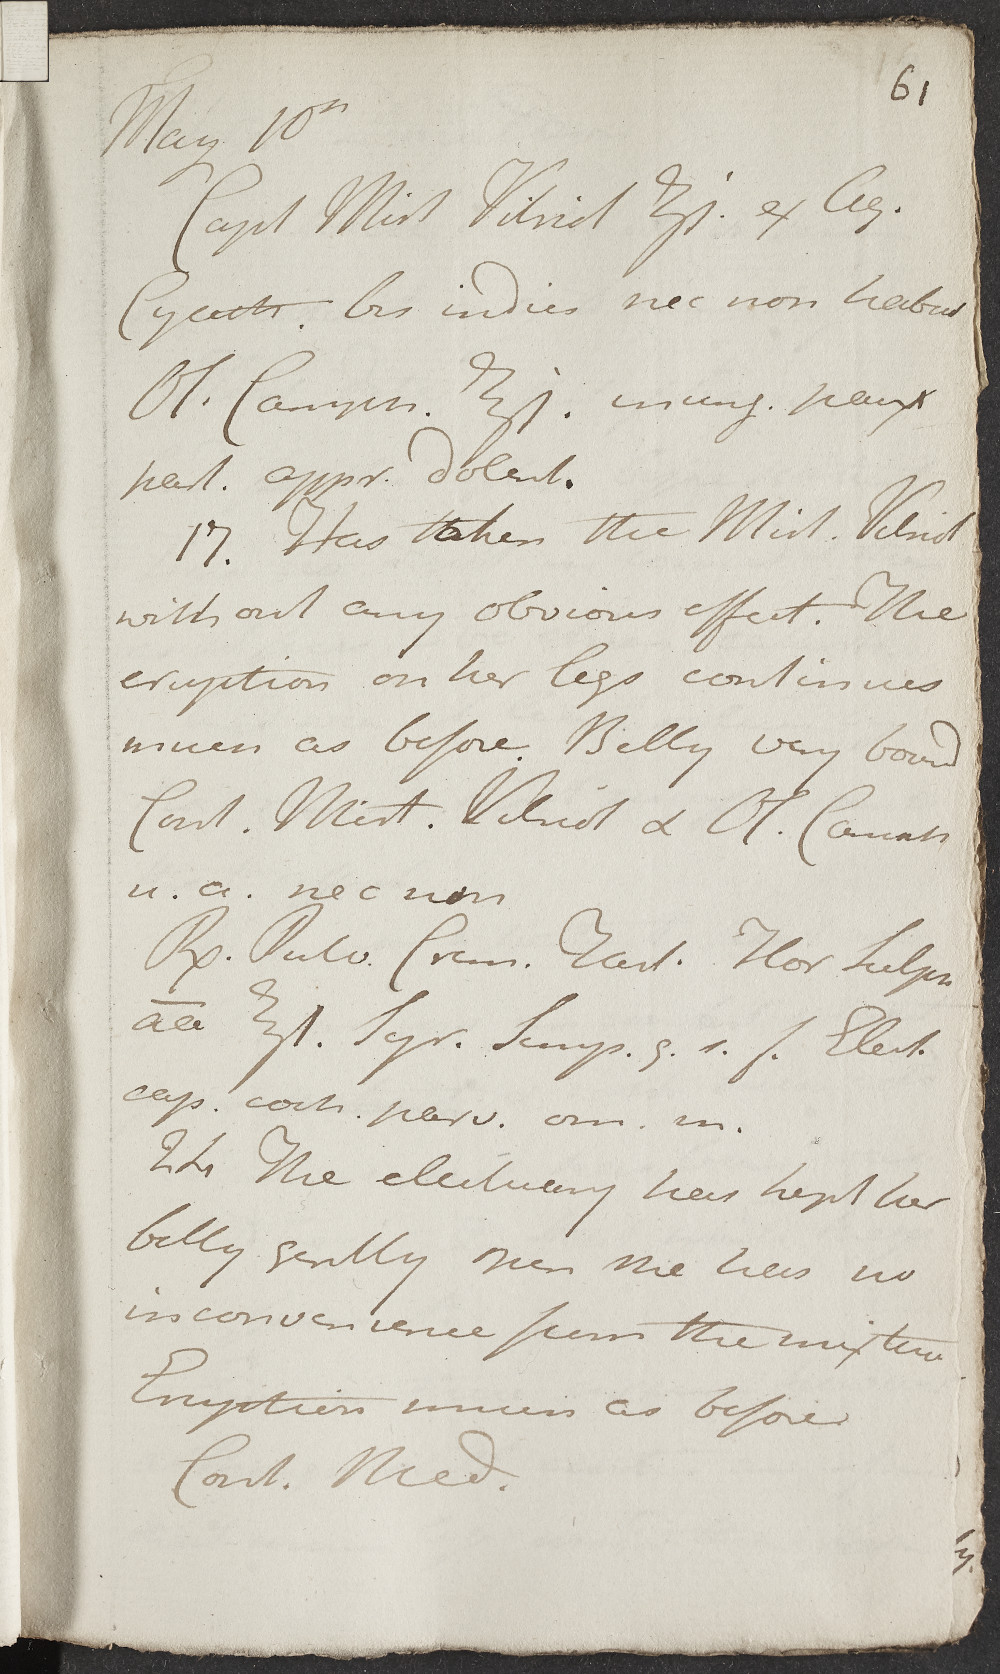 61
May 10th
Capt Mist Vitriol ℥j. ex Aq.
Cyath. bis indies nec non habeat
Ol. Camph. ℥j. inung. paux
part. appr. dolent.
17. Has taken the Mist. Vitriol
without any obvious effect. The
eruption on her legs continues
much as before. Belly very bound
Cont. Mist. Vitriol & Ol. Camph
u. a. nec non
Rx. Pulv. Crem. Tart. Flor Sulph
āā ℥j. Syr. Simp. q. s. f. Elect.
cap. coch. parv. om. m.
24 The electuary has kept her
belly gently open she has no
inconvenience from the mixture
Eruption much as before
Cont. Med.
y.